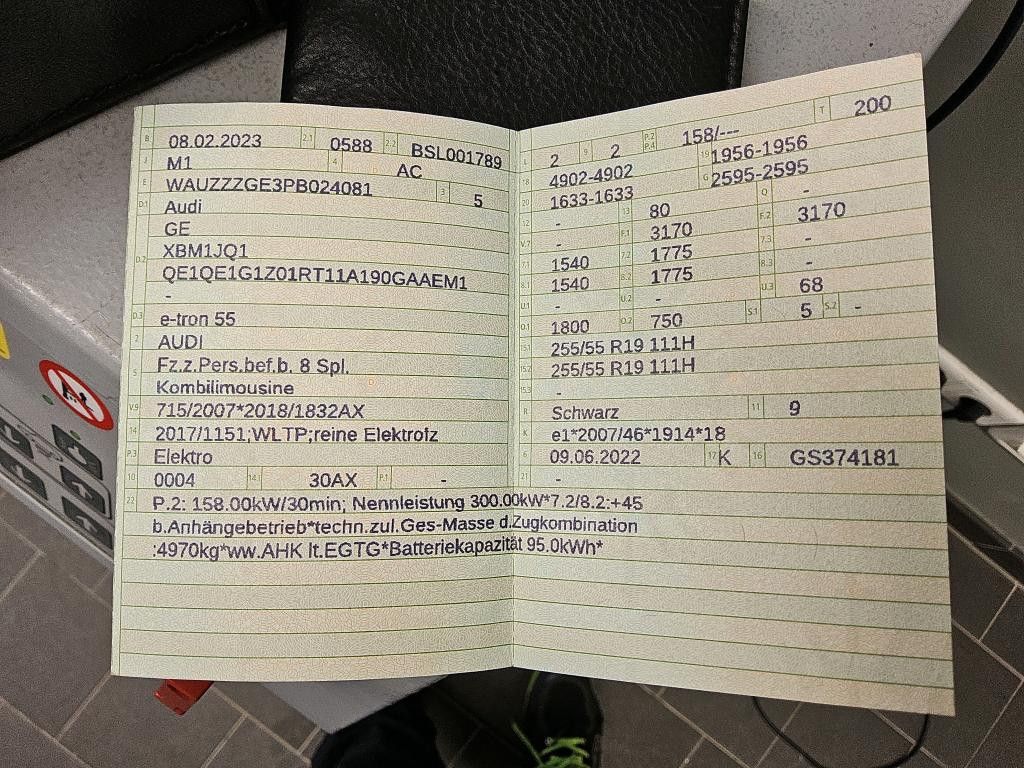 B 08.02.2023 2.1 0588 2.2 BSL001789
J M1 4 AC
E WAUZZZGE3PB024081 3 5
D.1 Audi
GE
D.2 XBM1JQ1
QE1QE1G1Z01RT11A190GAAEM1
-
D.3 e-tron 55
2 AUDI
5 Fz.z.Pers.bef.b. 8 Spl.
Kombilimousine
V.9 715/2007*2018/1832AX
14 2017/1151;WLTP;reine Elektrofz
P.3 Elektro
10 0004 14.1 30AX P.1 -
L 2 9 2 P.2 P.4 158/--- T 200
18 4902-4902 19 1956-1956
20 1633-1633 G 2595-2595
12 - 13 80 Q -
V.7 - F.1 3170 F.2 3170
7.1 1540 7.2 1775 7.3 -
8.1 1540 8.2 1775 8.3 -
U.1 - U.2 - U.3 68
O.1 1800 O.2 750 S.1 5 S.2 -
15.1 255/55 R19 111H
15.2 255/55 R19 111H
15.3 -
R Schwarz 11 9
K e1*2007/46*1914*18
6 09.06.2022 17 K 16 GS374181
21 -
22 P.2: 158.00kW/30min; Nennleistung 300.00kW*7.2/8.2:+45
b.Anhängebetrieb*techn.zul.Ges-Masse d.Zugkombination
:4970kg*ww.AHK lt.EGTG*Batteriekapazität 95.0kWh*